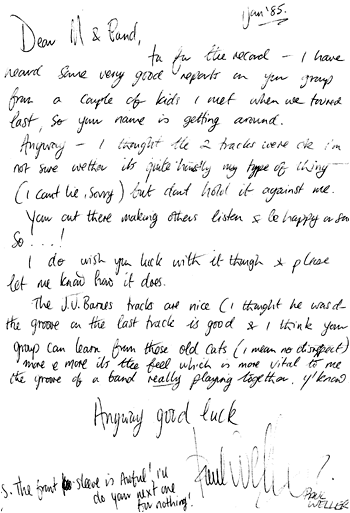 1 Jan '85.
Dear M & Band,
ta for the record - I have
heard some very good reports on your group
from a couple of kids I met when we toured
last, so your name is getting around.
Anyway - I thought the 2 tracks were ok i'm
not sure wether its quite honestly my type of thing -
(I cant lie, sorry) but dont hold it against me.
Your out there making others listen & be happy or
So ....!
I do wish you luck with it though & please
let me know how it does.
The J.J. Barnes tracks are nice (I thought he was
the groove on the last track is good & I think your
group can learn from these old cats (I mean no disrespect)
more & more its the feel which is more vital to me
the groove of a band really playing together. y'know
Anyway good luck
Paul Weller
S. The front sleeve is Awful! i'll
do your next one
for nothing!
PAUL
WELLER